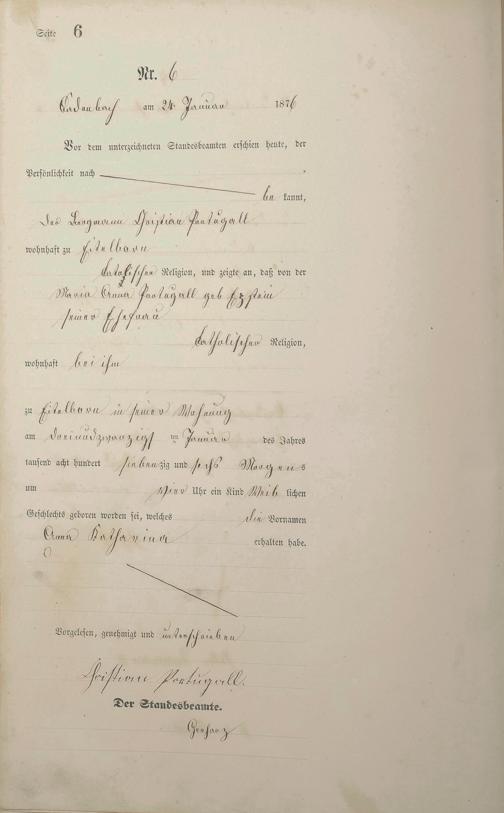 Seite 6
Nr. 6
Cadenbach am 24 Januar 1876
Vor dem unterzeichneten Standesbeamten erschien heute, der
Persönlichkeit nach
be kannt,
der Bergmann Christian Portugall
wohnhaft zu Eitelborn
katholischer Religion, und zeigte an, daß von der
Maria Anna Portugall geb Epstein
seiner Ehefrau
katholischer Religion,
wohnhaft bei ihm
zu Eitelborn in seiner Wohnung
am dreiundzwanzigst en Januar des Jahres
tausend acht hundert siebenzig und sechs Morgens
um vier Uhr ein Kind Weib lichen
Geschlechts geboren worden sei, welches die Vornamen
Anna Katharina
erhalten habe.
Vorgelesen, genehmigt und unterschrieben
Christian Portugall.
Der Standesbeamte.
Gerharz